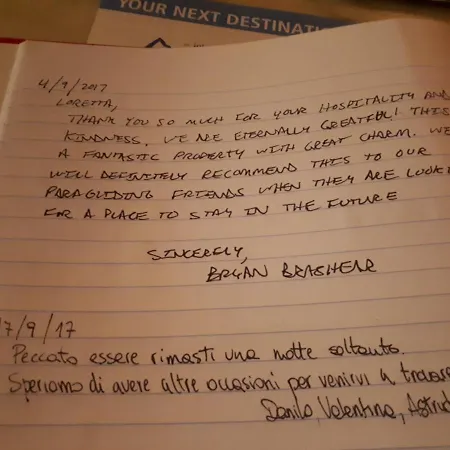 YOUR NEXT DESTINATI
4/9/2017
LORETTA,
THANK YOU SO MUCH FOR YOUR HOSPITALITY AND
KINDNESS. WE ARE ETERNALLY GREATFUL! THIS
A FANTASTIC PROPERTY WITH GREAT CHARM. WE
WILL DEFINITELY RECOMMEND THIS TO OUR
PARAGLIDING FRIENDS WHEN THEY ARE LOOKI
FOR A PLACE TO STAY IN THE FUTURE
SINCERELY,
BRYAN BRASHEAR
7/9/17
Peccato essere rimasti una notte soltanto.
Speriamo di avere altre occasioni per venirvi a trovare
Danilo, Valentina, Astrid